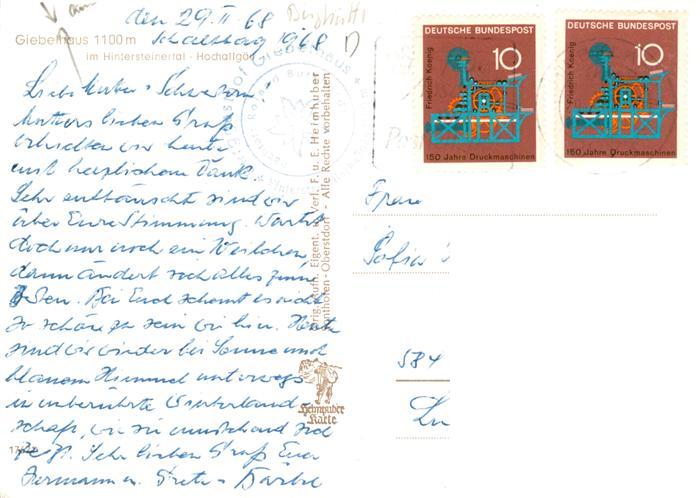 den 29. II 68
Schalttag 1968
Giebelhaus 1100 m
im Hintersteinertal - Hochallgäu
Liebe Mutter + Schwestern!
Muttis lieben Gruß
erhielten wir heute
mit herzlichem Dank.
Sehr enttäuscht sind wir
über Eure Stimmung. Wartet
doch nur noch ein Weilchen,
dann ändert sich alles zum
Besten. Bei Euch scheint es nicht
so schön zu sein wie hier. Heute
sind wir wieder bei Sonne und
blauem Himmel unterwegs
in unberührte Winterland-
schaft, wie sie umstehend sich
zeigt. Sehr lieben Gruß Euer
Hermann u. Grete + Bärbel
Verl. F. u. E. Heimhuber
Sonthofen - Oberstdorf - Alle Rechte vorbehalten
Heimhuber
Karte
DEUTSCHE BUNDESPOST
10
Friedrich Koenig
150 Jahre Druckmaschinen
DEUTSCHE BUNDESPOST
10
Friedrich Koenig
150 Jahre Druckmaschinen
Frau
Sofia
584